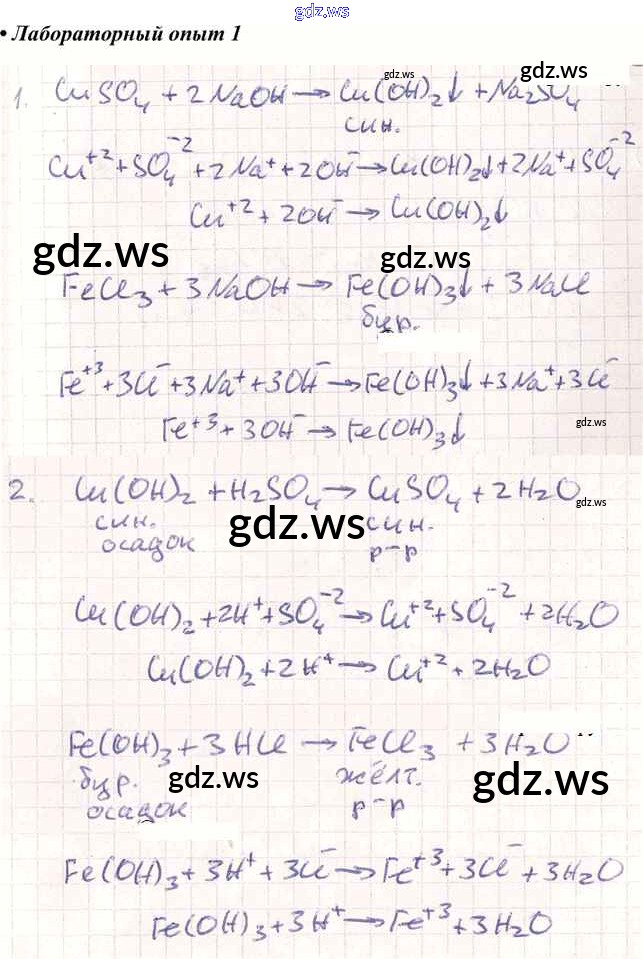 gdz.ws
• Лабораторный опыт 1
gdz.ws
gdz.ws
1. CuSO₄ + 2NaOH → Cu(OH)₂↓ + Na₂SO₄
син.
Cu⁺² + SO₄⁻² + 2Na⁺ + 2OH⁻ → Cu(OH)₂↓ + 2Na⁺ + SO₄⁻²
Cu⁺² + 2OH⁻ → Cu(OH)₂↓
gdz.ws
gdz.ws
FeCl₃ + 3NaOH → Fe(OH)₃↓ + 3NaCl
бур.
Fe⁺³ + 3Cl⁻ + 3Na⁺ + 3OH⁻ → Fe(OH)₃↓ + 3Na⁺ + 3Cl⁻
Fe⁺³ + 3OH⁻ → Fe(OH)₃↓
gdz.ws
2. Cu(OH)₂ + H₂SO₄ → CuSO₄ + 2H₂O
gdz.ws
син. син.
gdz.ws
осадок р-р
Cu(OH)₂ + 2H⁺ + SO₄⁻² → Cu⁺² + SO₄⁻² + 2H₂O
Cu(OH)₂ + 2H⁺ → Cu⁺² + 2H₂O
Fe(OH)₃ + 3HCl → FeCl₃ + 3H₂O
бур. жёлт.
gdz.ws
gdz.ws
осадок р-р
Fe(OH)₃ + 3H⁺ + 3Cl⁻ → Fe⁺³ + 3Cl⁻ + 3H₂O
Fe(OH)₃ + 3H⁺ → Fe⁺³ + 3H₂O